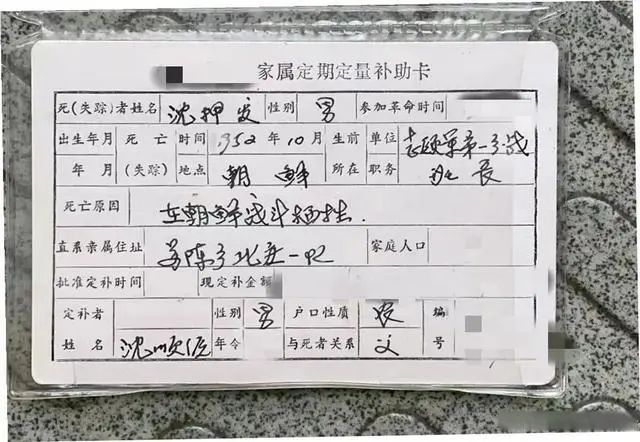 家属定期定量补助卡
死(失踪)者姓名 沈押发 性别 男 参加革命时间
出生年月 死亡 时间 1952年10月 生前 单位 志愿军第一
年 月 (失踪) 地点 朝鲜 所在 职务 班长
死亡原因 在朝鲜战斗牺牲.
直系亲属住址 苏陈乡北 家庭人口
批准定补时间 现定补金额
定补者 性别 男 户口性质 农 编
姓名 沈顺 年令 与死者关系 父 号